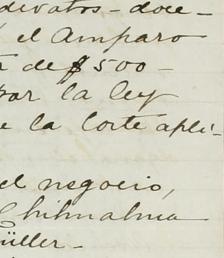 divatos - doce-
el Amparo
de $500 -
por la ley
e la Corte apli-
el negocio,
Chihuahua
üller -